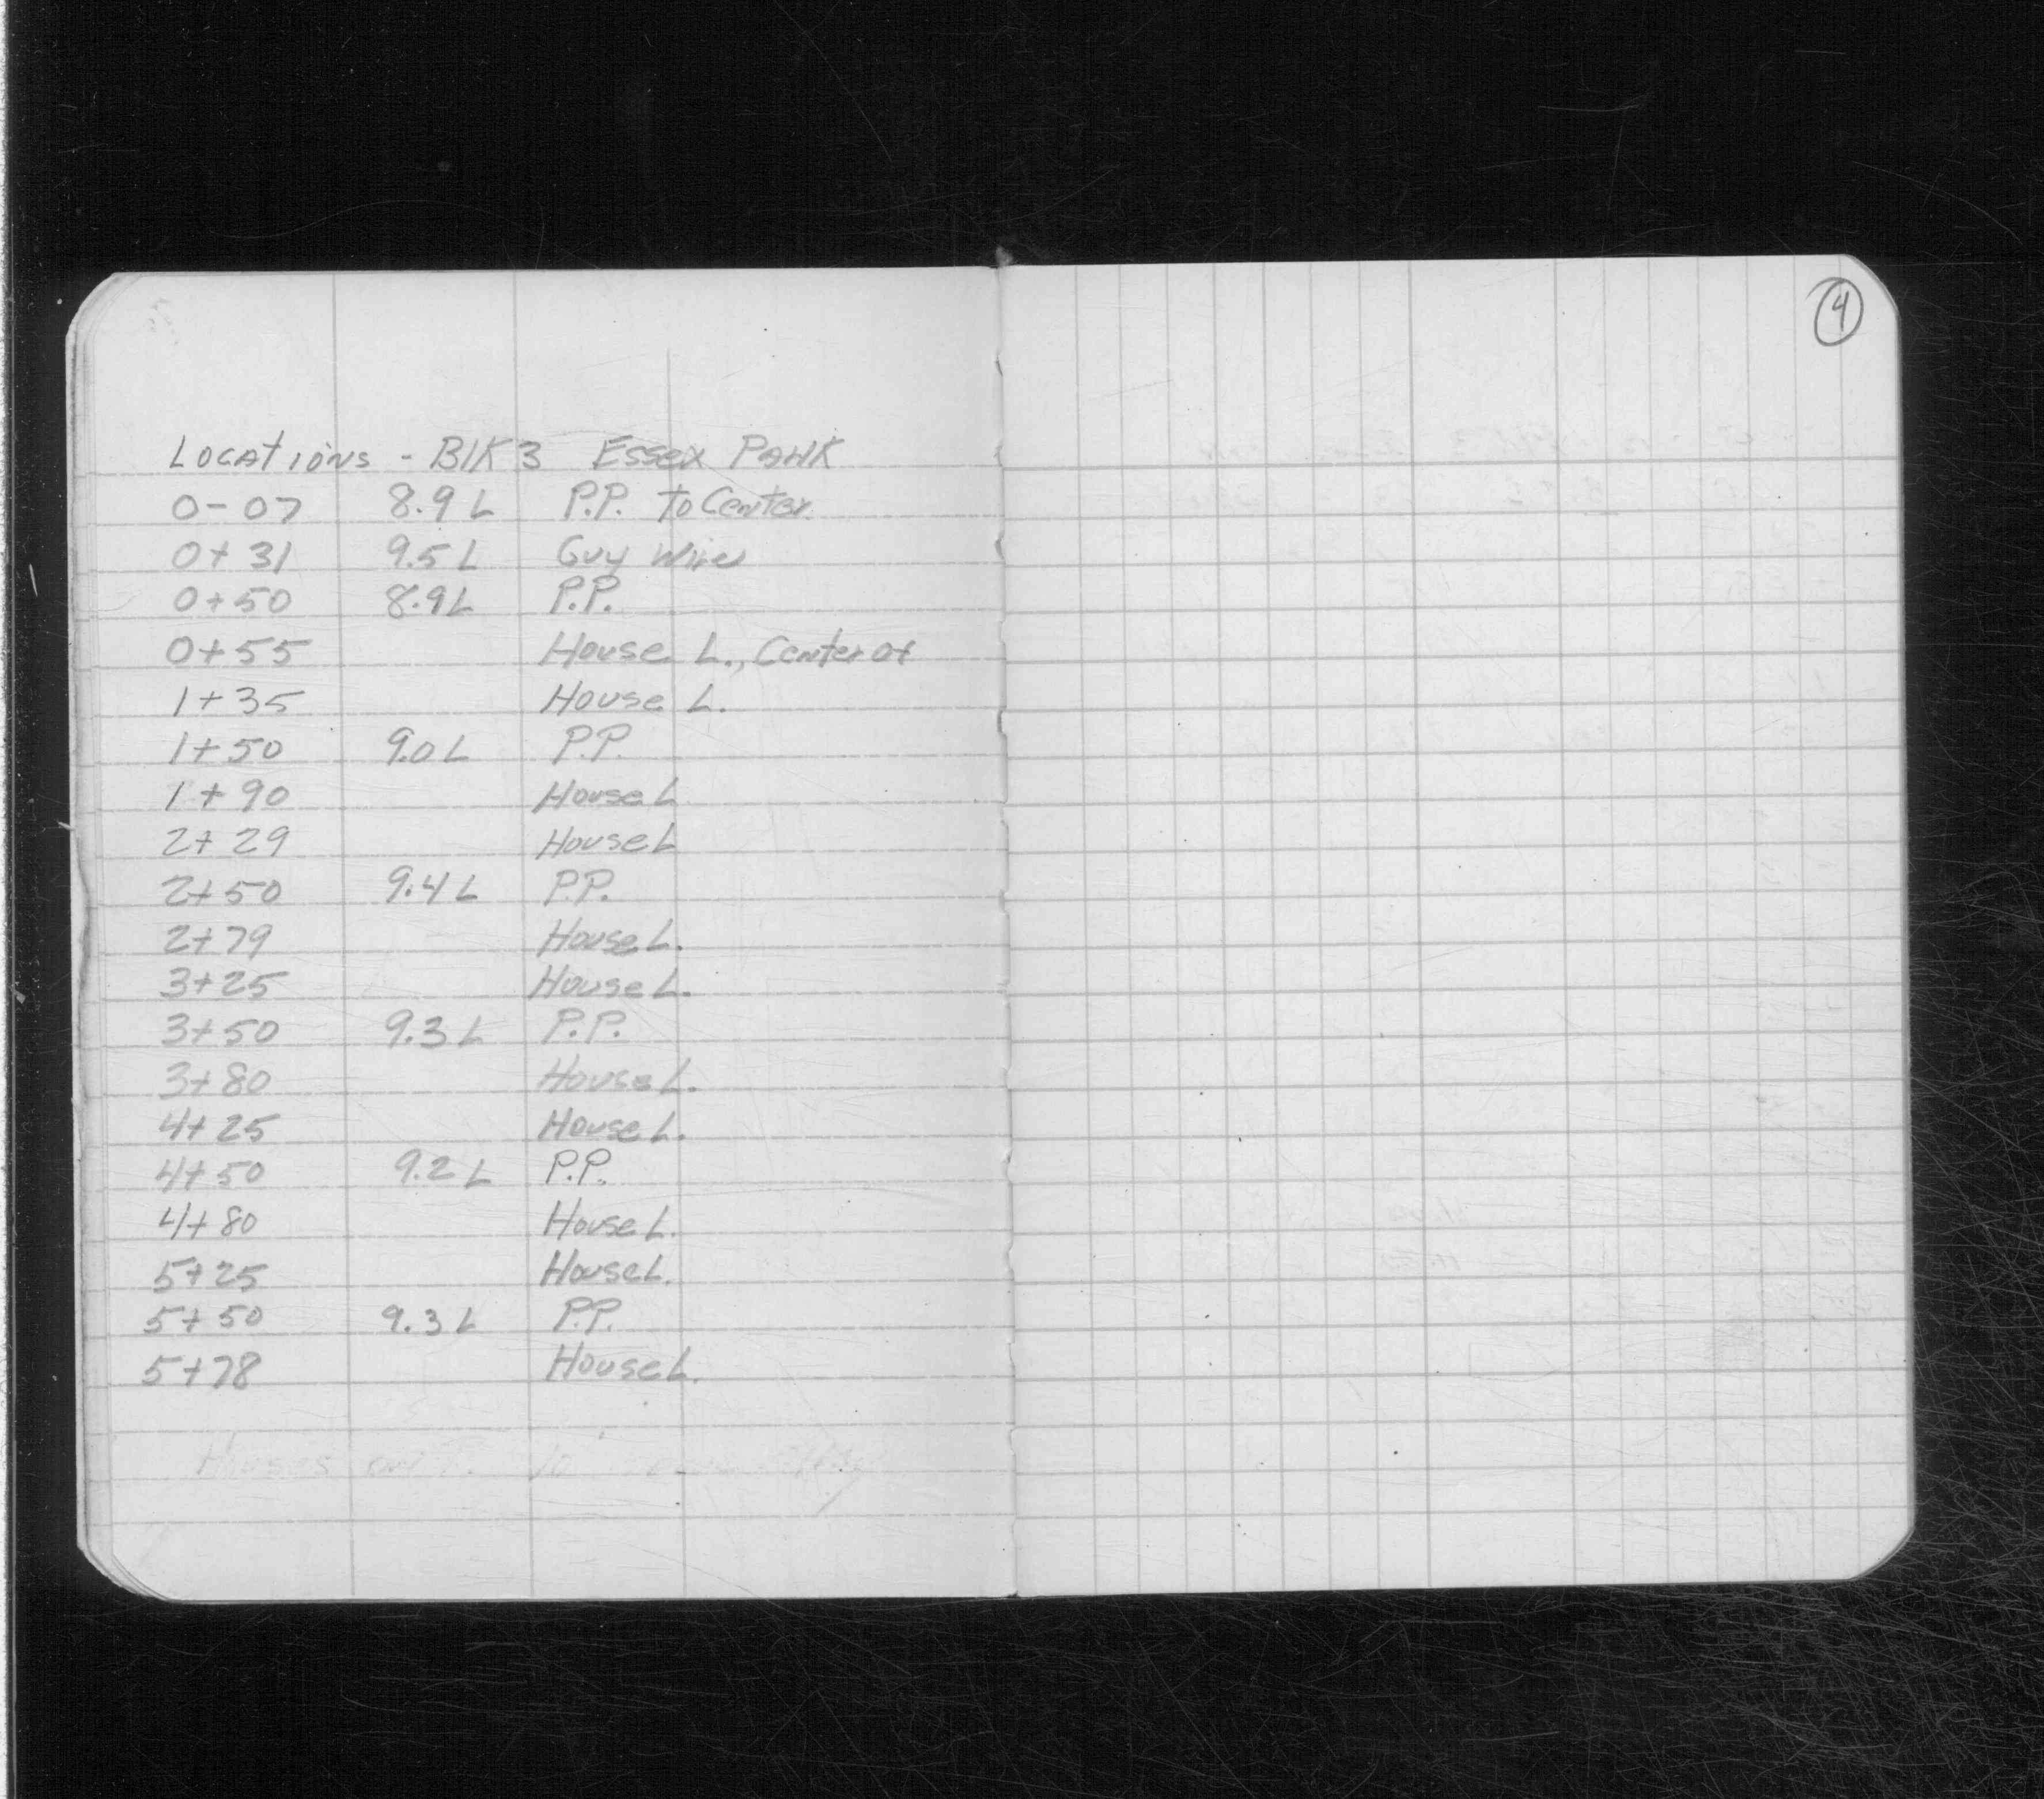 Locations - Blk 3 Essex Park
0-07 8.9 L P.P. to Center
0+31 9.5 L Guy Wire
0+50 8.9 L P.P.
0+55 House L., Center of
1+35 House L.
1+50 9.0 L P.P.
1+90 House L
2+29 House L
2+50 9.4 L P.P.
2+79 House L.
3+25 House L.
3+50 9.3 L P.P.
3+80 House L.
4+25 House L.
4+50 9.2 L P.P.
4+80 House L.
5+25 House L.
5+50 9.3 L P.P.
5+78 House L.
Houses
4